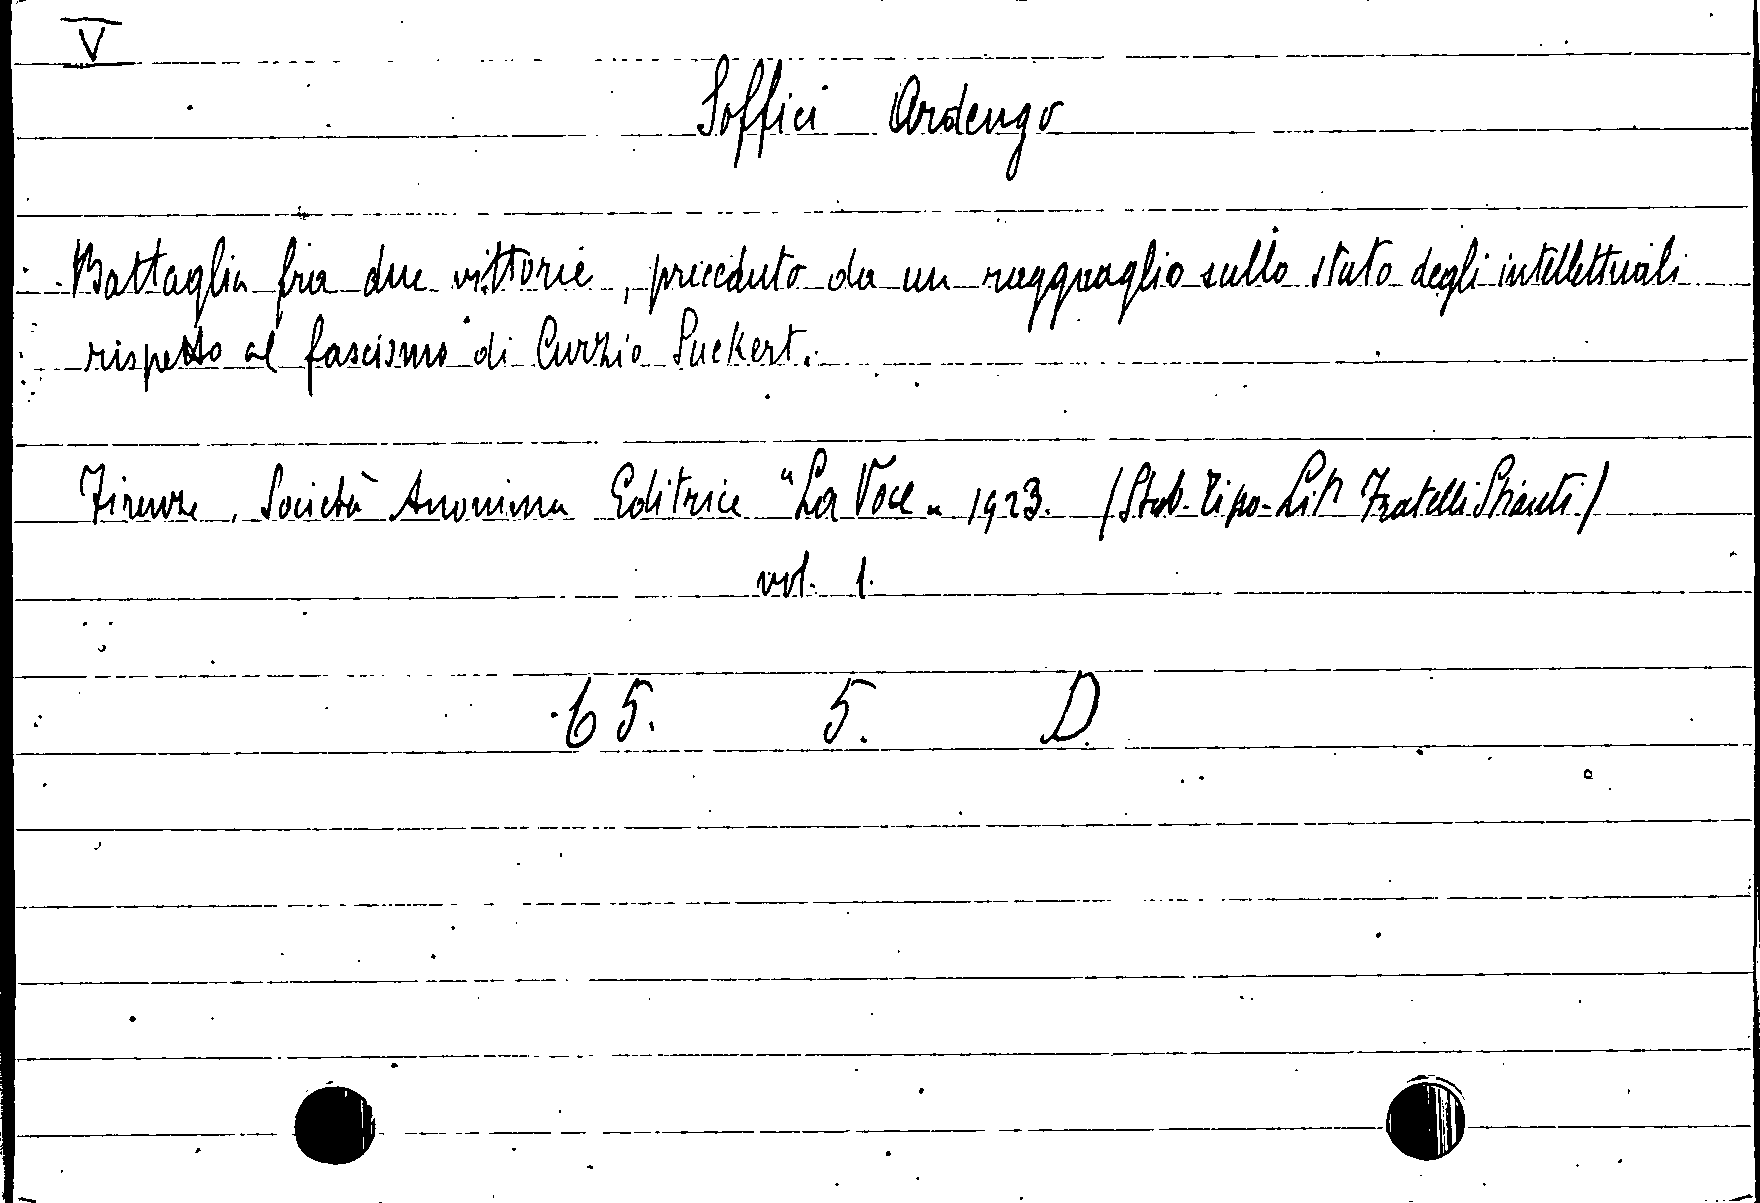 V
Soffici Ardengo
Battaglia fra due vittorie, preceduto da un ragguaglio sullo stato degli intellettuali
rispetto al fascismo di Curzio Suckert.
Firenze, Società Anonima Editrice "La Voce" 1923. (Stab. Tipo-Lit. Fratelli Stianti)
vol. 1.
65. 5. D.